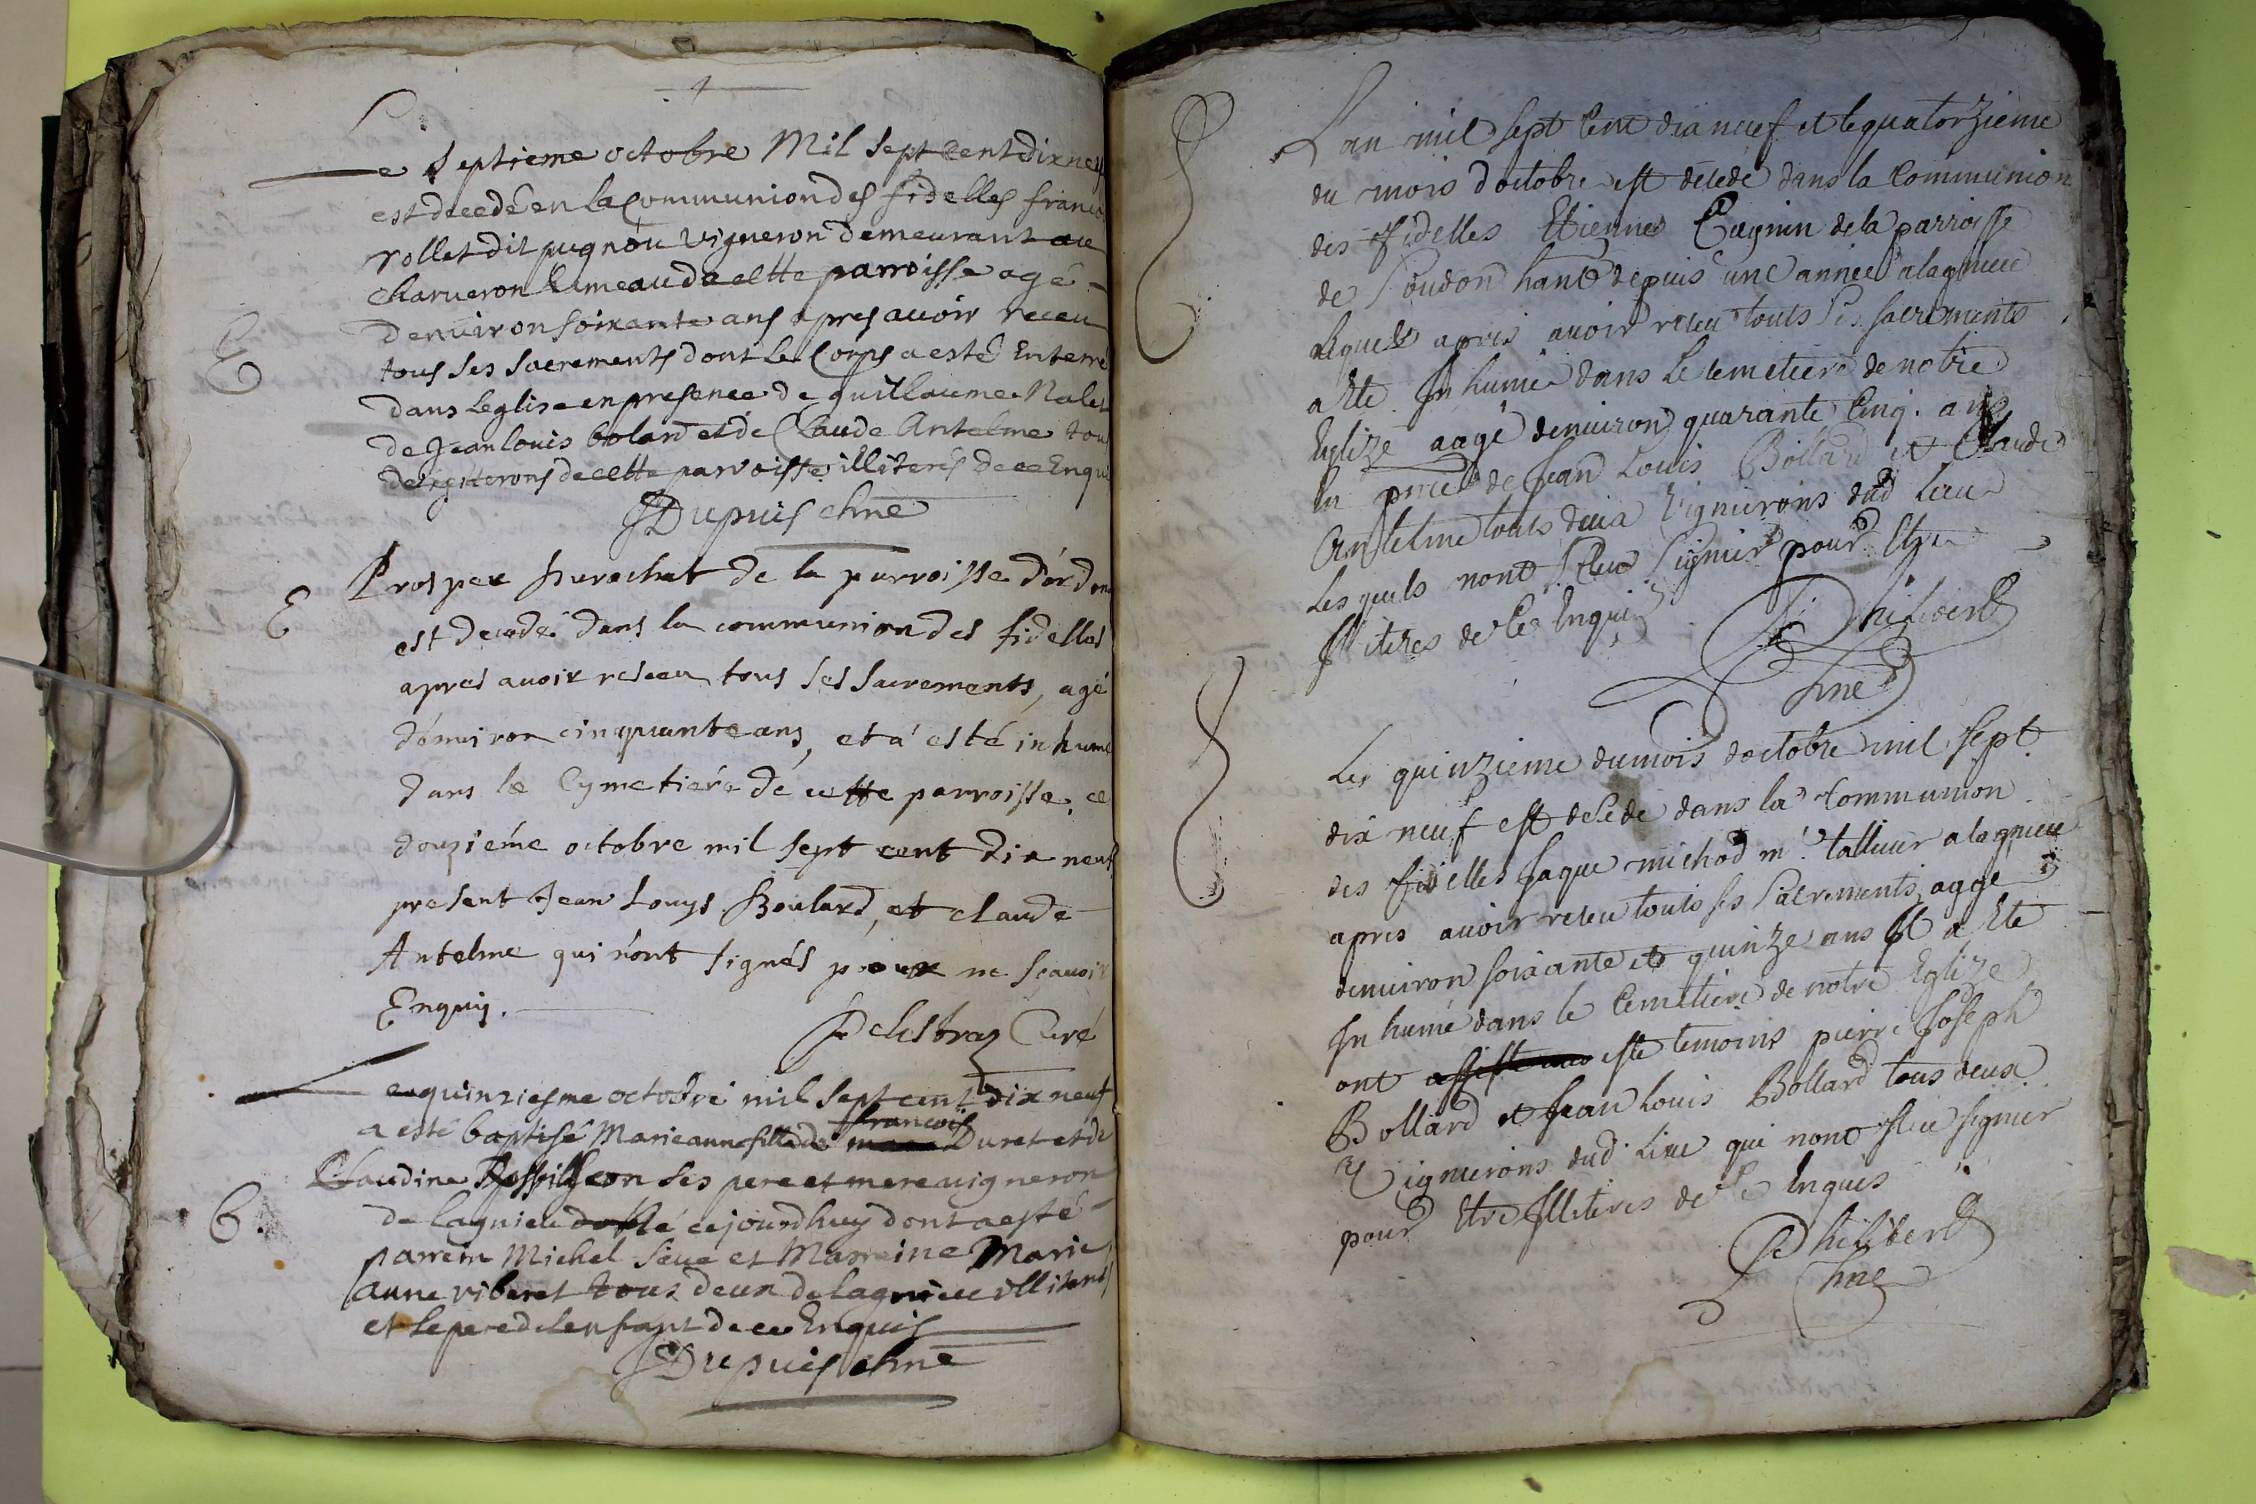 Le septieme octobre Mil sept cent dix neuf
est decedé en la Communion des fidelles franco
rollet dit pugnou vigneron demeurant au
charveron hameau de cette parroisse agé
denviron soixante ans apres avoir receu
tous ses sacrements dont le Corps a esté Enterré
dans Leglise en presence de guillaume Nalet
de Jean louis bolard et de Claude Antelme tou
de cette parroisse illiterés de ce Enqui
Dupuis chne
E
Prosper Durochat de la parroisse d'ordon
est decedé dans la communion des fidelles
apres avoir reseu tous ses sacrements, agé
d'énviron cinquante ans, et a esté inhumé
dans le Cymetiére dé cette parroisse, ce
douziéme octobre mil sept cent dix neuf
present Jean Louys Boulard, et claude
Antelme qui n'ont signés pour ne sçavoir
Enquis.
E
Delestraz Curé
Le quinziesme octobre mil sept cent dix neuf
francois
a esté baptisé Marieanne fille de Duret et de
Claudine Rossillion ses pere et mere vigneron
de lagnieu cejourdhuy dont a esté
parrein Michel Seve et Marreine Marie
anne viberet tous deux de lagnieu illiteres
et le pere de lenfant de ce Enquis
B.
Dupuis chne
Lan mil sept Cent dix neuf et le quatorzieme
du mois doctobre est décedé dans la Communion
des fidelles Etienne Cugnin de la parroisse
de Soudon hant depuis une année a lagnieu
lequel apres avoir reseu touts ses sacrements
a Eté Inhumé dans Le Cemetiere de notre
Eglize aagé denviron quarante Cinq ans
En pnce de Jean Louis Bollard et Claude
Antelme touts deux Vignierons dud Lieu
Lesquels nont sceu signier pour Etre
Illiteres de Ce Enquis
Philibert
chne
Le quinzieme du mois doctobre mil sept
dix neuf est decede dans la Communion
des fidelles Jaque michod me tallieur a lagnieu
apres avoir reseu touts ses Sacrements, aggé
denviron soixante et quinze ans Et a Eté
Inhumé dans le Cemetiere de notre Eglize
ont esté temoins pierre Joseph
Bollard et Jean Louis Bollard tous deux
Vignierons dud Lieu qui nont sceu signier
pour Etre Illiteres de Ce Enquis
Philibert
chne